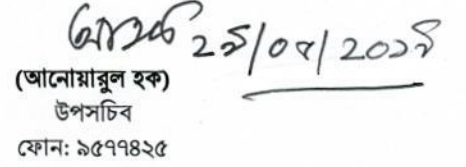 ২৯/০৫/২০১৯
(আনোয়ারুল হক)
উপসচিব
ফোন: ৯৫৭৭৪২৫